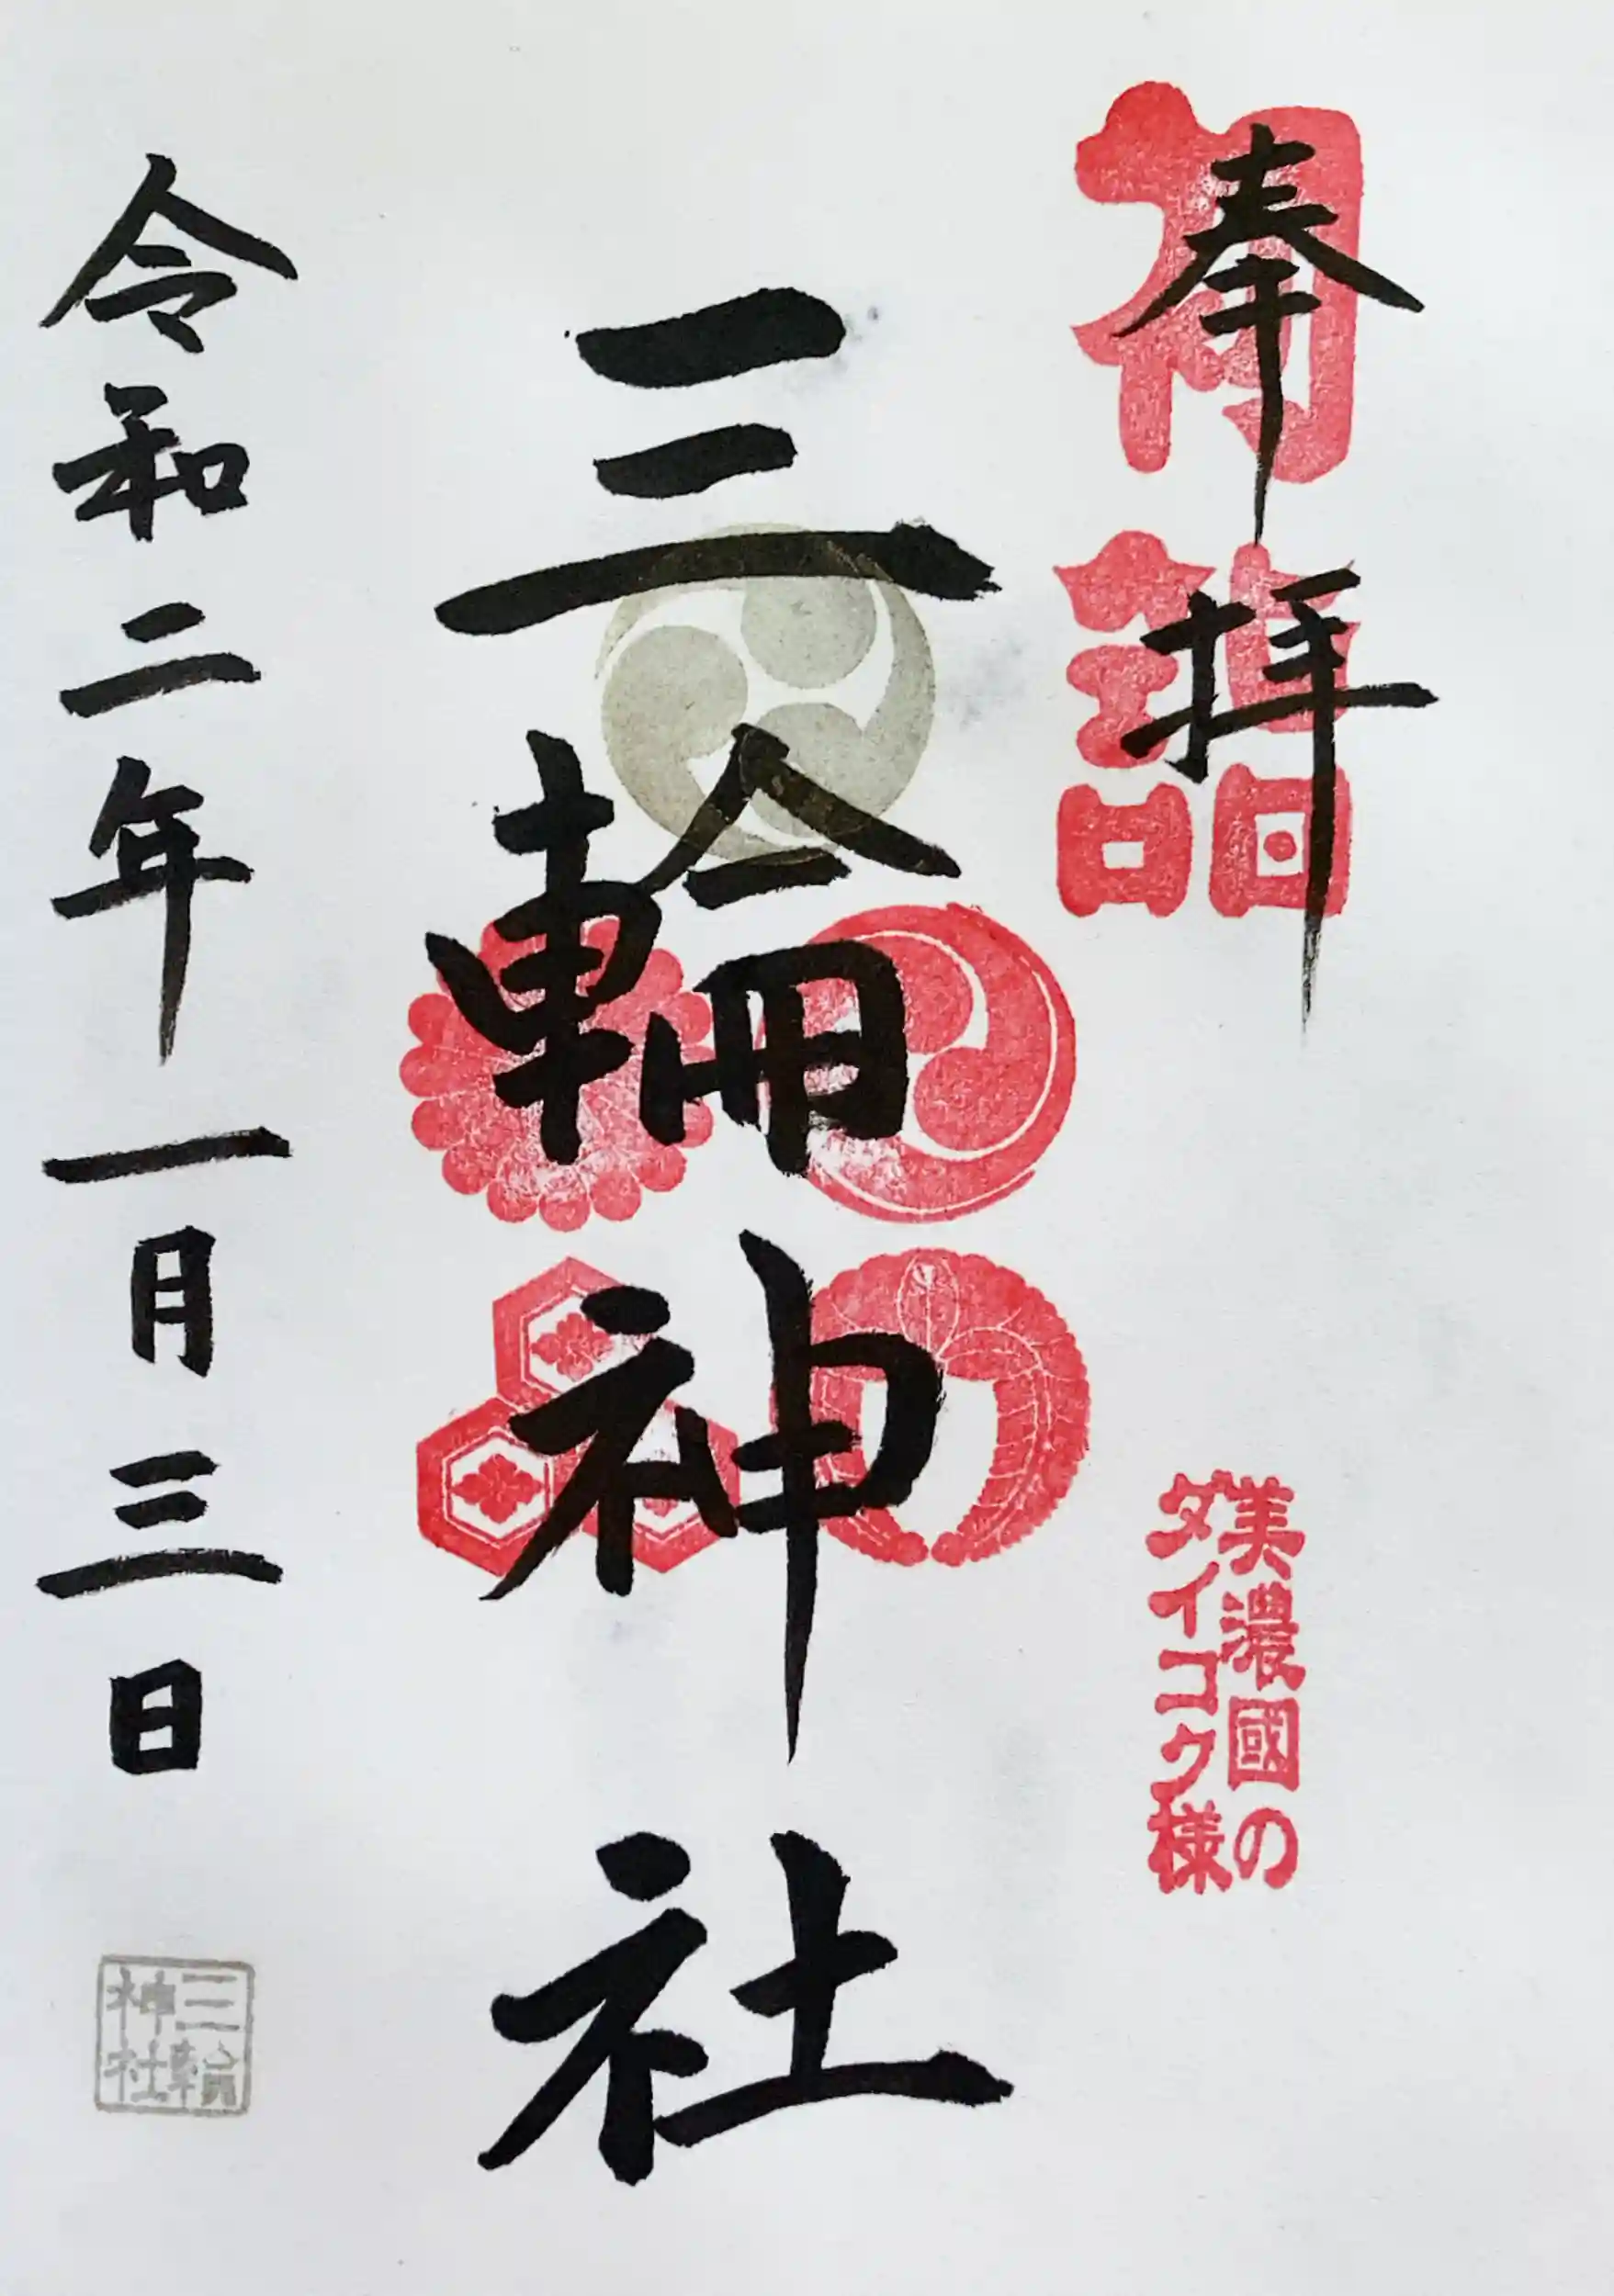 奉拝
初詣
美濃國の
タイコク様
三輪神社
令和二年一月三日
三輪
神社